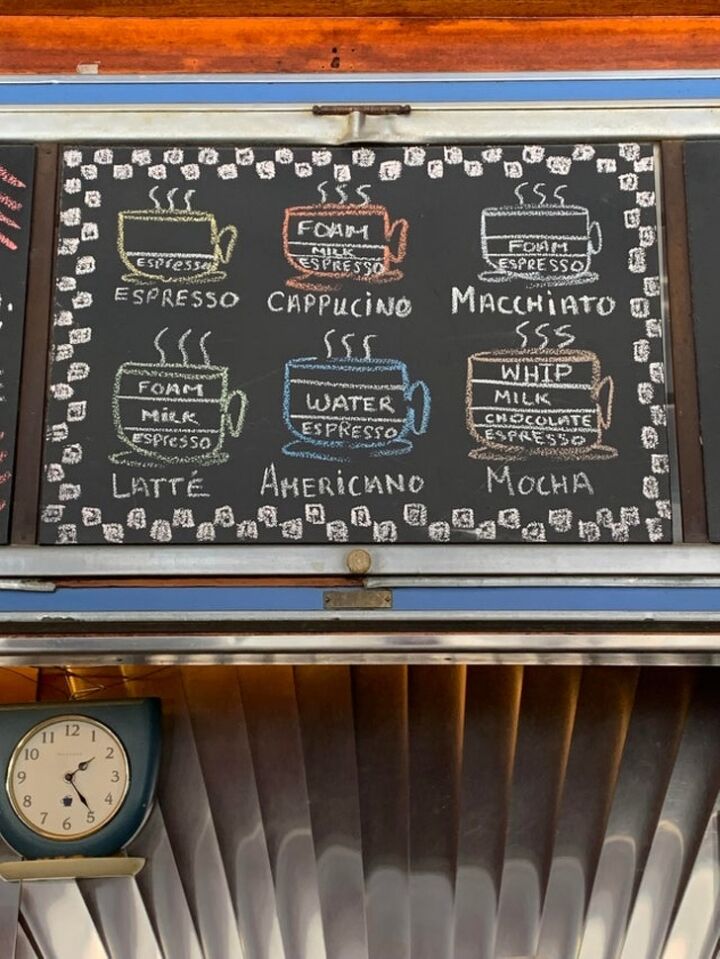 Espresso
ESPRESSO
FOAM
MILK
ESPRESSO
CAPPUCINO
FOAM
ESPRESSO
MACCHIATO
FOAM
MILK
ESPRESSO
LATTÉ
WATER
ESPRESSO
AMERICANO
WHIP
MILK
CHOCOLATE
ESPRESSO
MOCHA
12
1
2
3
4
5
6
7
8
9
10
11